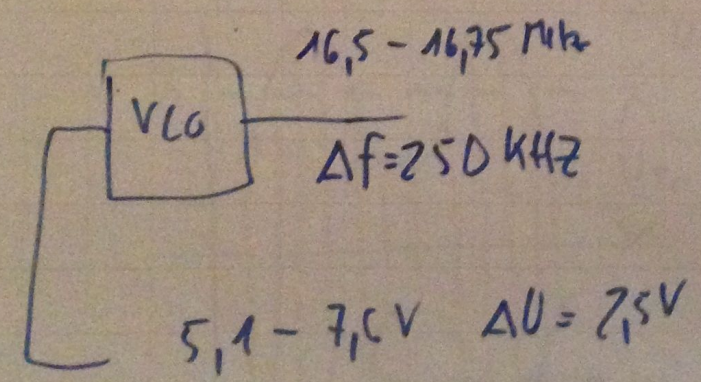 16,5 - 16,75 MHz
VCO
Δf=250 KHZ
5,1 - 7,6 V ΔU = 2,5V